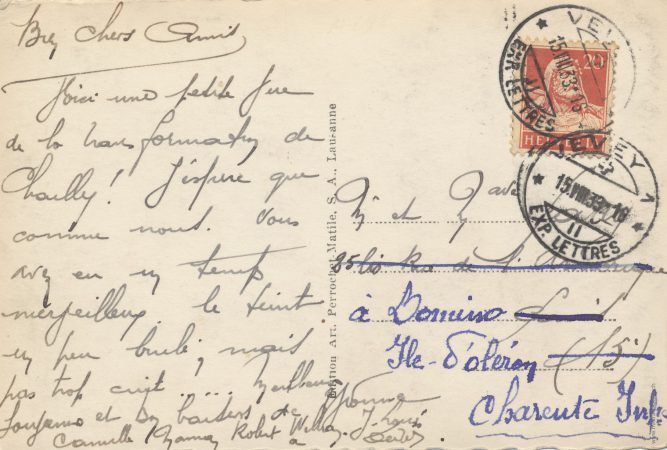 Bien chers Amis
Voici une petite vue
de la transformation de
Chailly! J'espère que
comme nous. Vous
avez eu un temps
merveilleux. le teint
un peu brulé, mais
pas trop cuit.... meilleurs
et bons baisers de Yvonne
Camille Robert Willy J. Louis
Edition Art. Perrochet-Matile, S. A., Lausanne
VEVEY
15.VIII.33.-16
II
EXP. LETTRES
20
HELVETIA
VEVEY 1
15.VIII.33.-16
II
EXP. LETTRES
M et Mme
85 bis Rue de
à Domino
Ile-d'oléron (15e)
Charente Inf